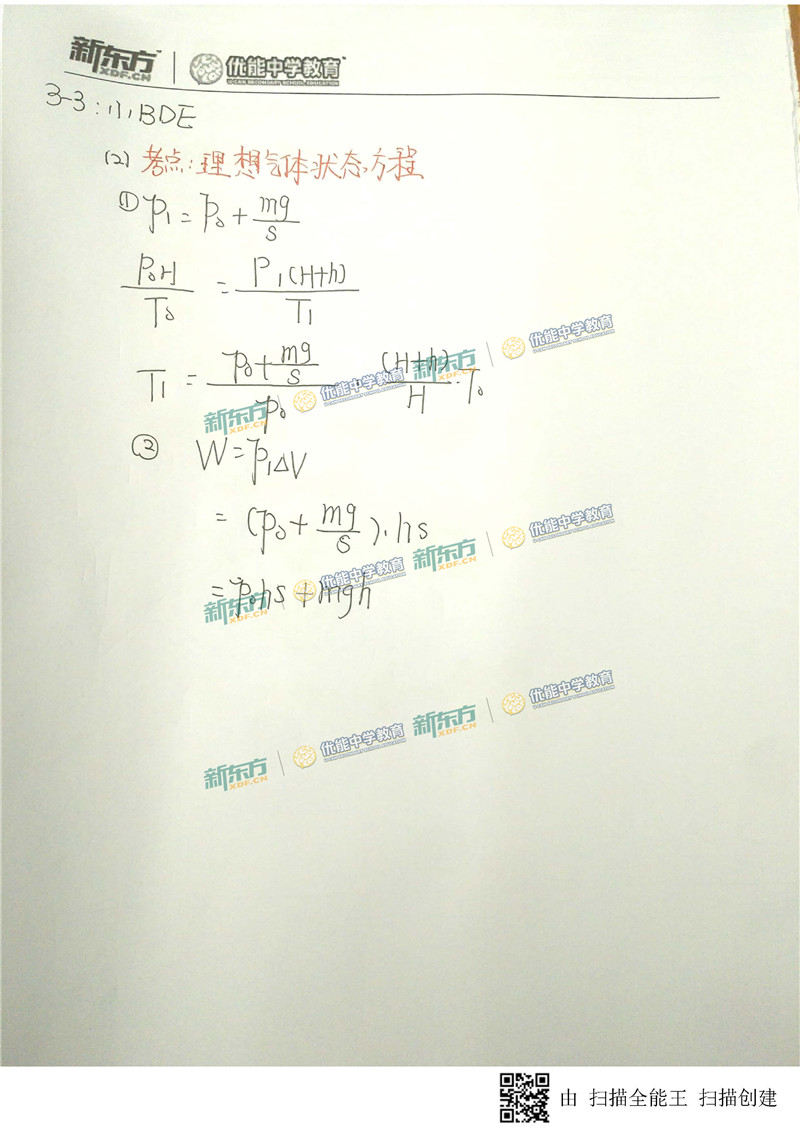 新东方 XDF.CN | 优能中学教育 U-CAN SECONDARY SCHOOL EDUCATION
3-3:(1)BDE
(2)考点:理想气体状态方程
① P₁=P₀+mg/s
P₀H/T₀ = P₁(H+h)/T₁
T₁ = (P₀+mg/s)/P₀ · (H+h)/H · T₀
② W=P₁ΔV
=(P₀+mg/s)·hs
=P₀hs+mgh
新东方 XDF.CN | 优能中学教育 新东方 XDF.CN | 优能中学教育
新东方 XDF.CN | 优能中学教育 新东方 XDF.CN | 优能中学教育
新东方 XDF.CN | 优能中学教育 新东方 XDF.CN | 优能中学教育
由 扫描全能王 扫描创建